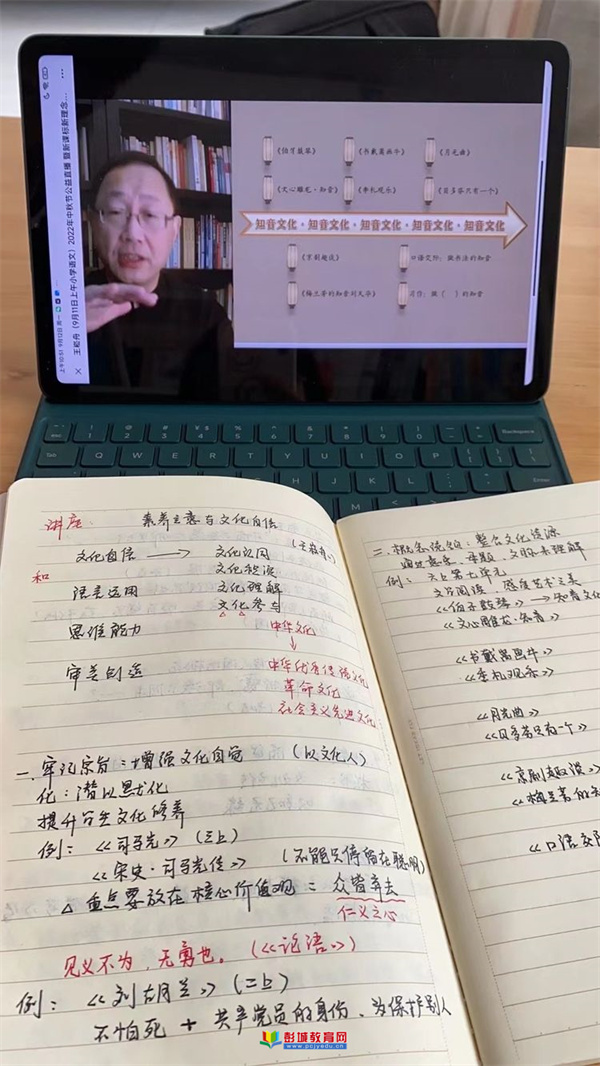 王崧舟（9月11日上午小学语文）2022年中秋节公益直播 暨新课标新理念...
上午10:51 9月12日 周一
《伯牙鼓琴》
《书戴嵩画牛》
《月光曲》
《文心雕龙·知音》
《季札观乐》
《贝多芬只有一个》
知音文化·知音文化·知音文化·知音文化·知音文化
《京剧趣谈》
口语交际：做书法的知音
《梅兰芳的知音刘天华》
习作：做（ ）的知音
Backspace
讲座：
素养立意与文化自信
文化自信 → 文化认同
和
文化积淀
语言运用 文化理解
文化参与
思维能力 中华文化
审美创造 中华优秀传统文化
革命文化
社会主义先进文化
一、牢记宗旨：增强文化自觉 （以文化人）
化：潜以思尤化
提升学生文化修养
例：《司马光》（三上）
《宋史·司马光传》（不能只停留在聪明）
△ 重点要放在核心价值观：众皆弃去
仁义之心
见义不为，无勇也。（《论语》）
例：《刘胡兰》（二上）
不怕死 + 共产党员的身份、为保护别人
二、概念统领：整合文化资源
例：六上第七单元
文方阅读，感受艺术之美
《伯牙鼓琴》→ 知音文化
《文心雕龙·知音》
《书戴嵩画牛》
《季札观乐》
《月光曲》
《贝多芬只有一个》
《京剧趣谈》
《梅兰芳的知
《口语交际
彭城教育网
www.pcjyedu.cn